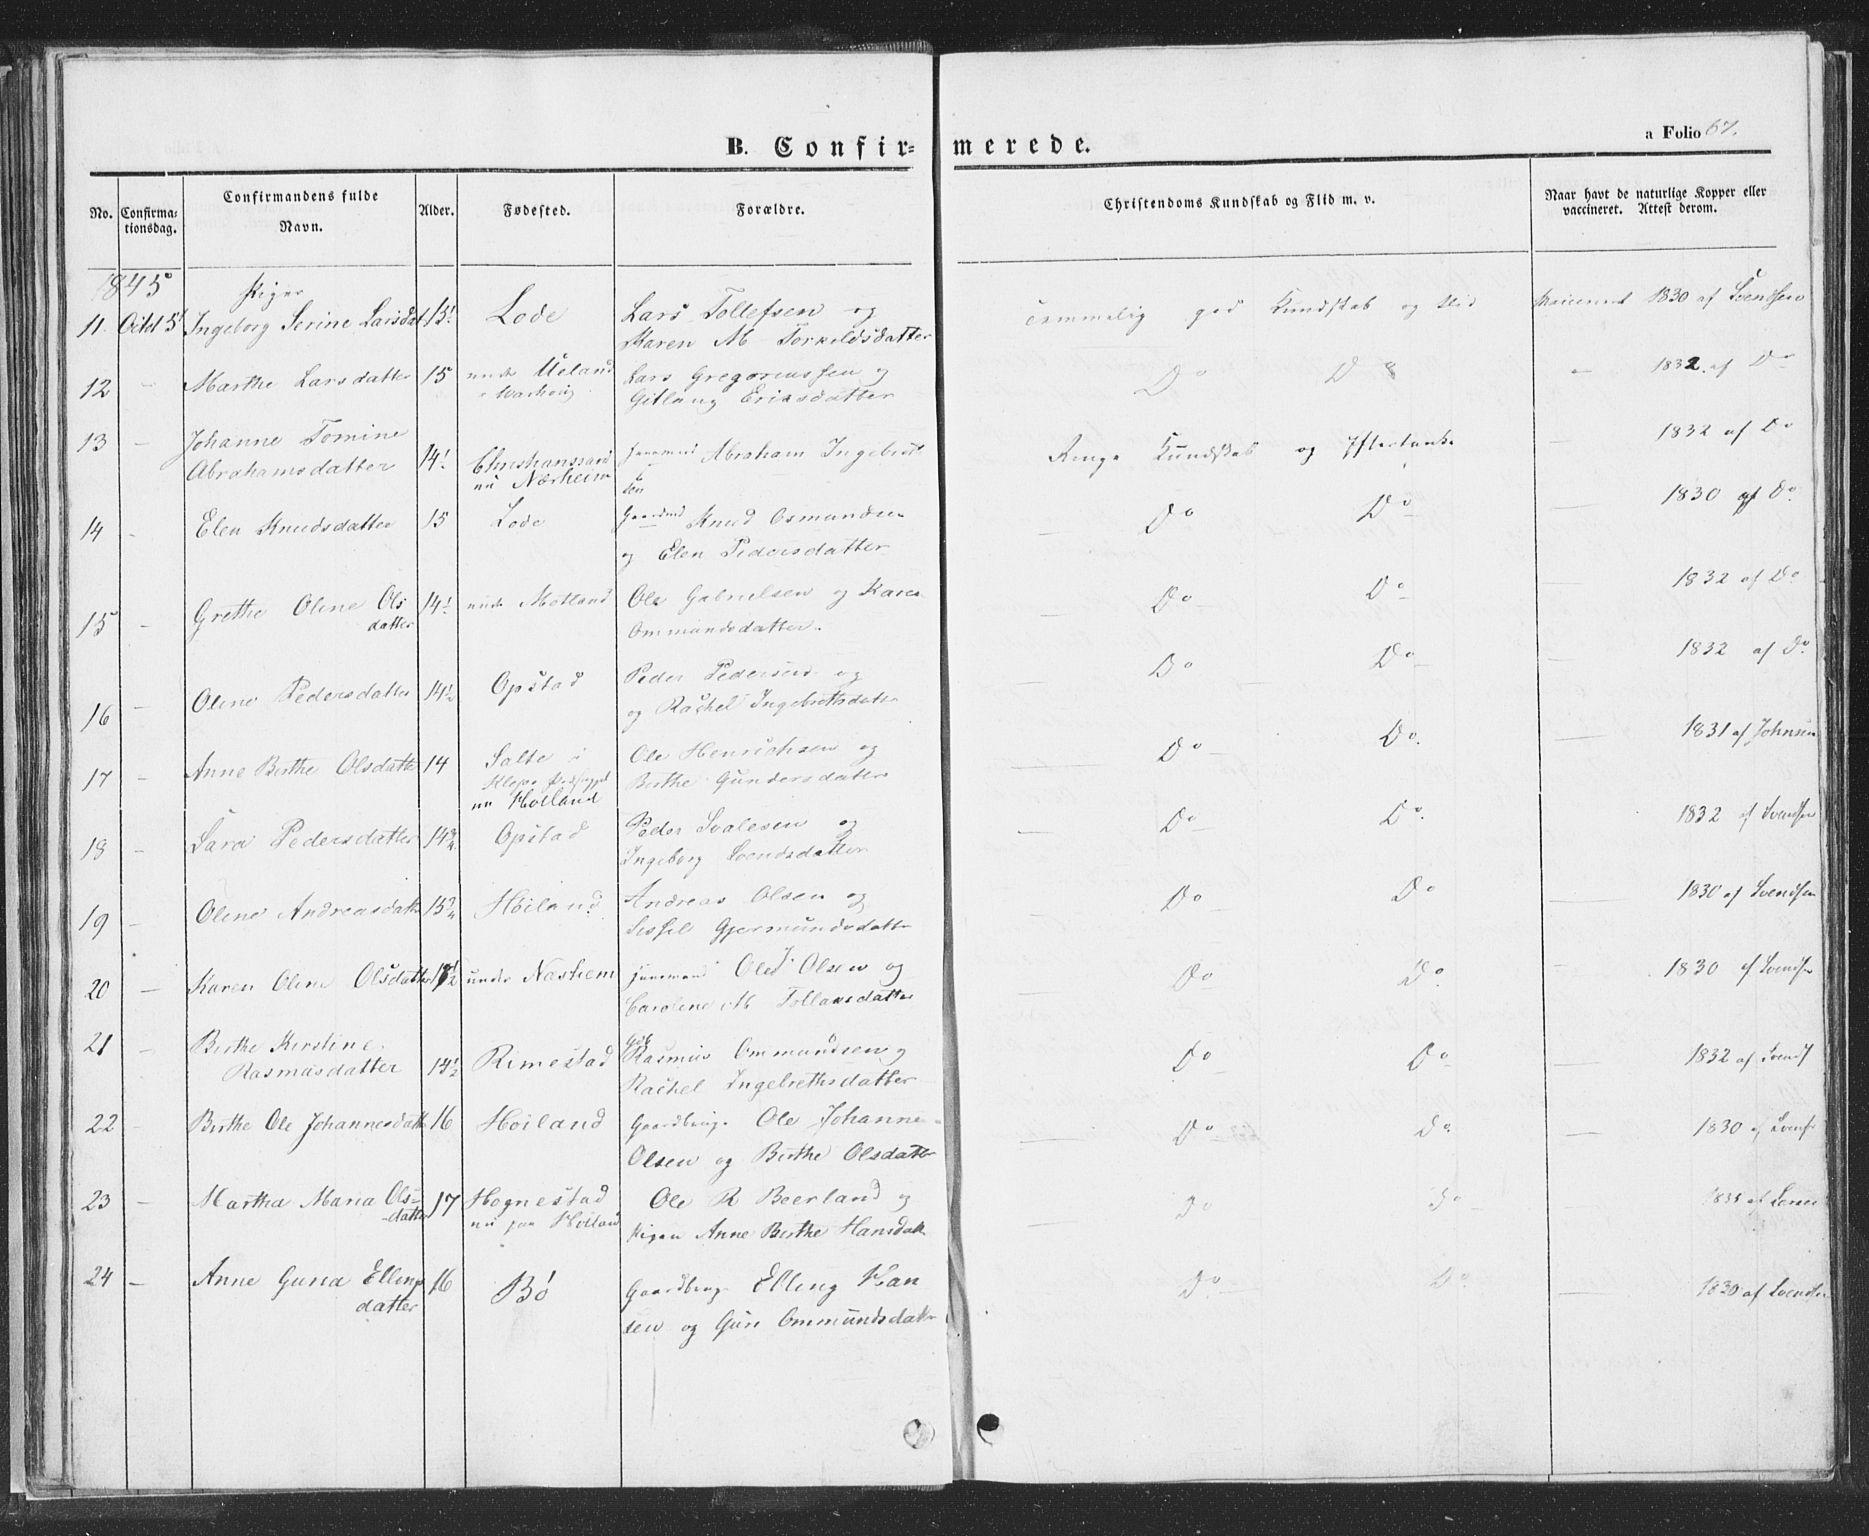 B. Confir= merede.
a Folio 67.
No.
Confirma=
tionsdag.
Confirmandens fulde
Navn.
Alder.
Fødested.
Forældre.
Christendoms Kundskab og Flid m. v.
Naar havt de naturlige Kopper eller
vaccineret. Attest derom.
1845
Piger
11. Octbr 5t Ingeborg Serine Larsdat 15½ Lode Lars Tollefsen og
Karen M Torkildsdatter
temmelig god Kundskab og Flid Vaccineret 1830 af Svendsen
12 - Marthe Larsdatter 15 under Ueland
i Warhoug
Lars Gregoriussen og
Gitlaug Eriksdatter
Do Do - 1832 af Do
13 - Johanne Tomine
Abrahamsdatter 14½ Christianssand
nu Nærheim
Huusmand Abraham Ingebret
sen
Ringe Kundskab og Eftertanke 1832 af Do
14 - Elen Knudsdatter 15 Lode Gaardmd Knud Osmundsen
og Elen Pedersdatter
Do Do 1830 af Do.
15 - Grethe Oline Ols
datter 14½ under Motland Ole Gabrielsen og Karen
Ommundsdatter.
Do Do 1832 af Do
16 - Oline Pedersdatter 14½ Opstad Peder Pedersen og
og Rachel Ingebrethsdatter
Do Do 1832 af Do.
17 - Anne Berthe Olsdatter 14 Salte i
Klepp Præstegjeld
nu Høiland
Ole Henrichsen og
Berthe Gundersdatter
Do Do. 1831 af Johnsen
18 - Sara Pedersdatter 14¾ Opstad Peder Svalesen og
Ingeborg Svendsdatter
Do Do. 1832 af Svendsen
19 - Oline Andreasdatt 15¾ Høiland Andreas Olsen og
Sissel Gjermundsdatter
Do Do 1830 af Svendsen
20 - Karen Oline Olsdatter under Nærheim Huusmand Ole Olsen og
Caroline M Tollaksdatter
Do Do 1830 af Svendsen
21 - Berthe Kirstine
Rasmusdatter 14½ Rimestad Gbr
Rasmus Ommundsen og
Rachel Ingebrethsdatter
Do Do 1832 af Svends
22 - Berthe Ole Johannesdatt 16 Høiland Gaardbrug. Ole Johannes
Olsen og Berthe Olsdatter
Do Do 1830 af Svends
23 - Martha Maria Ols-
-datter 17 Hognestad
nu paa Høiland
Ole R Beerland og
Pigen Anne Berthe Hansdatt
Do Do
24 - Anne Guria Ellings
datter 16 Bø Gaardbrug. Elling Han
sen og Guri Ommundsdatter
Do Do 1830 af Svendsen